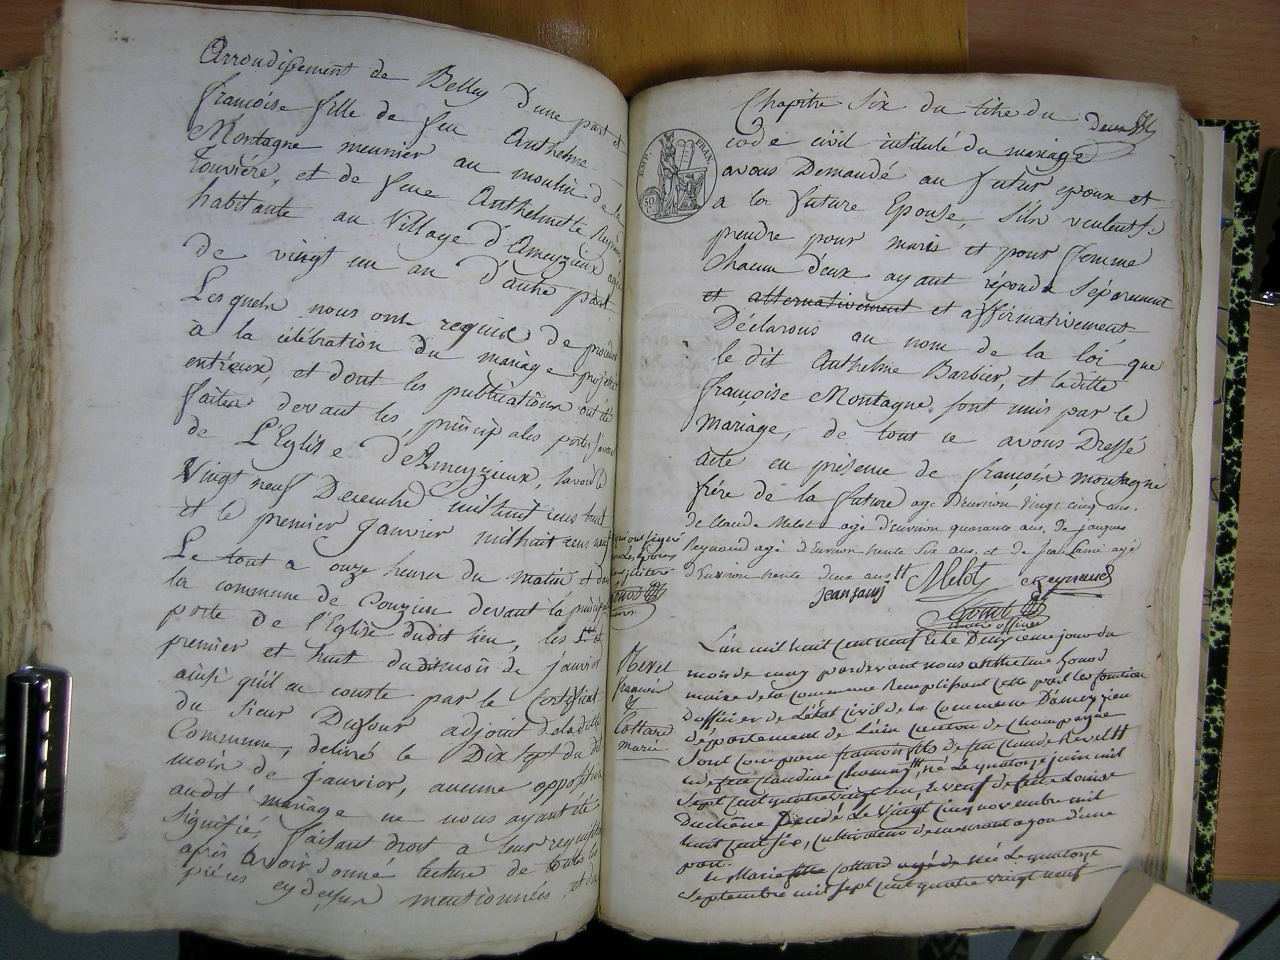 Arrondissement de Belley d'une part et
françoise fille de feu Anthelme
Montagne meunier au moulin de la
Touvière, et de feue Anthelmette
habitante au Village d'Ameyzieux
de vingt un an d'autre part
Lesquels nous ont requis de procéder
à la célébration du mariage projetté
entreeux, et dont les publications ont été
faites devant les principales portes
de L'Eglise d'Ameyzieux, savoir le
Vingt neuf Decembre mil huit cens huit
et le premier Janvier mil huit cens neuf
Le tout a onze heures du matin et dans
la commune de Pouzieu devant la principale
porte de l'Eglise dudit lieu, les
premier et huit du mois de janvier
ainsi qu'il en conste par le Certificat
du Sieur Dufour adjoint de ladite
Commune, délivré le Dix Sept du dit
mois de janvier, aucune opposition
audit mariage ne nous ayant été
signifié, faisant droit a leur requisition
après avoir donné lecture de toutes les
pièces cy dessus mentionnées, et du
Chapitre Six du titre du
code civil intitulé du mariage
avons Demandé au futur epoux et
a la future Epouse, s'ils veulent se
prendre pour mari et pour femme
Chacun d'eux ayant répondu séparément
et alternativement et affirmativement
Déclarons au nom de la loi que
le dit Anthelme Barbier, et ladite
françoise Montagne, sont unis par le
Mariage, de tout ce avons Dressé
acte en présence de françois montagne
frère de la future agé d'environ vingt cinq ans.
de Claude Melot agé d'environ quarante ans, de jacques
Reynaud agé d'Environ trente Six ans, et de Jean Sami agé
d'Environ trente deux ans
Melot Reynaud
jean sami
L'an mil huit cent neuf et le Deuxieme jour du
mois de may pardevant nous anthelme
maire de la Commune Remplissant cette part les fonctions
d'officier de L'état Civil de la Commune D'ameyzieu
département de L'ain Canton de Champagne
Sont Comparu francois fils de feu Claude Revel
et de feue Claudine né Le quatorze juin mil
Sept cent quatre vingt un, Veuf de fette Louise
Duchêne Décédé Le Vingt cinq novembre mil
huit cent six, Cultivateur demeurant a d'une
part.
et Marie fille Cottard agé de Née Le quatorze
Septembre mil sept cent quatre vingt neuf
Revel
francois
&
Cottard
marie